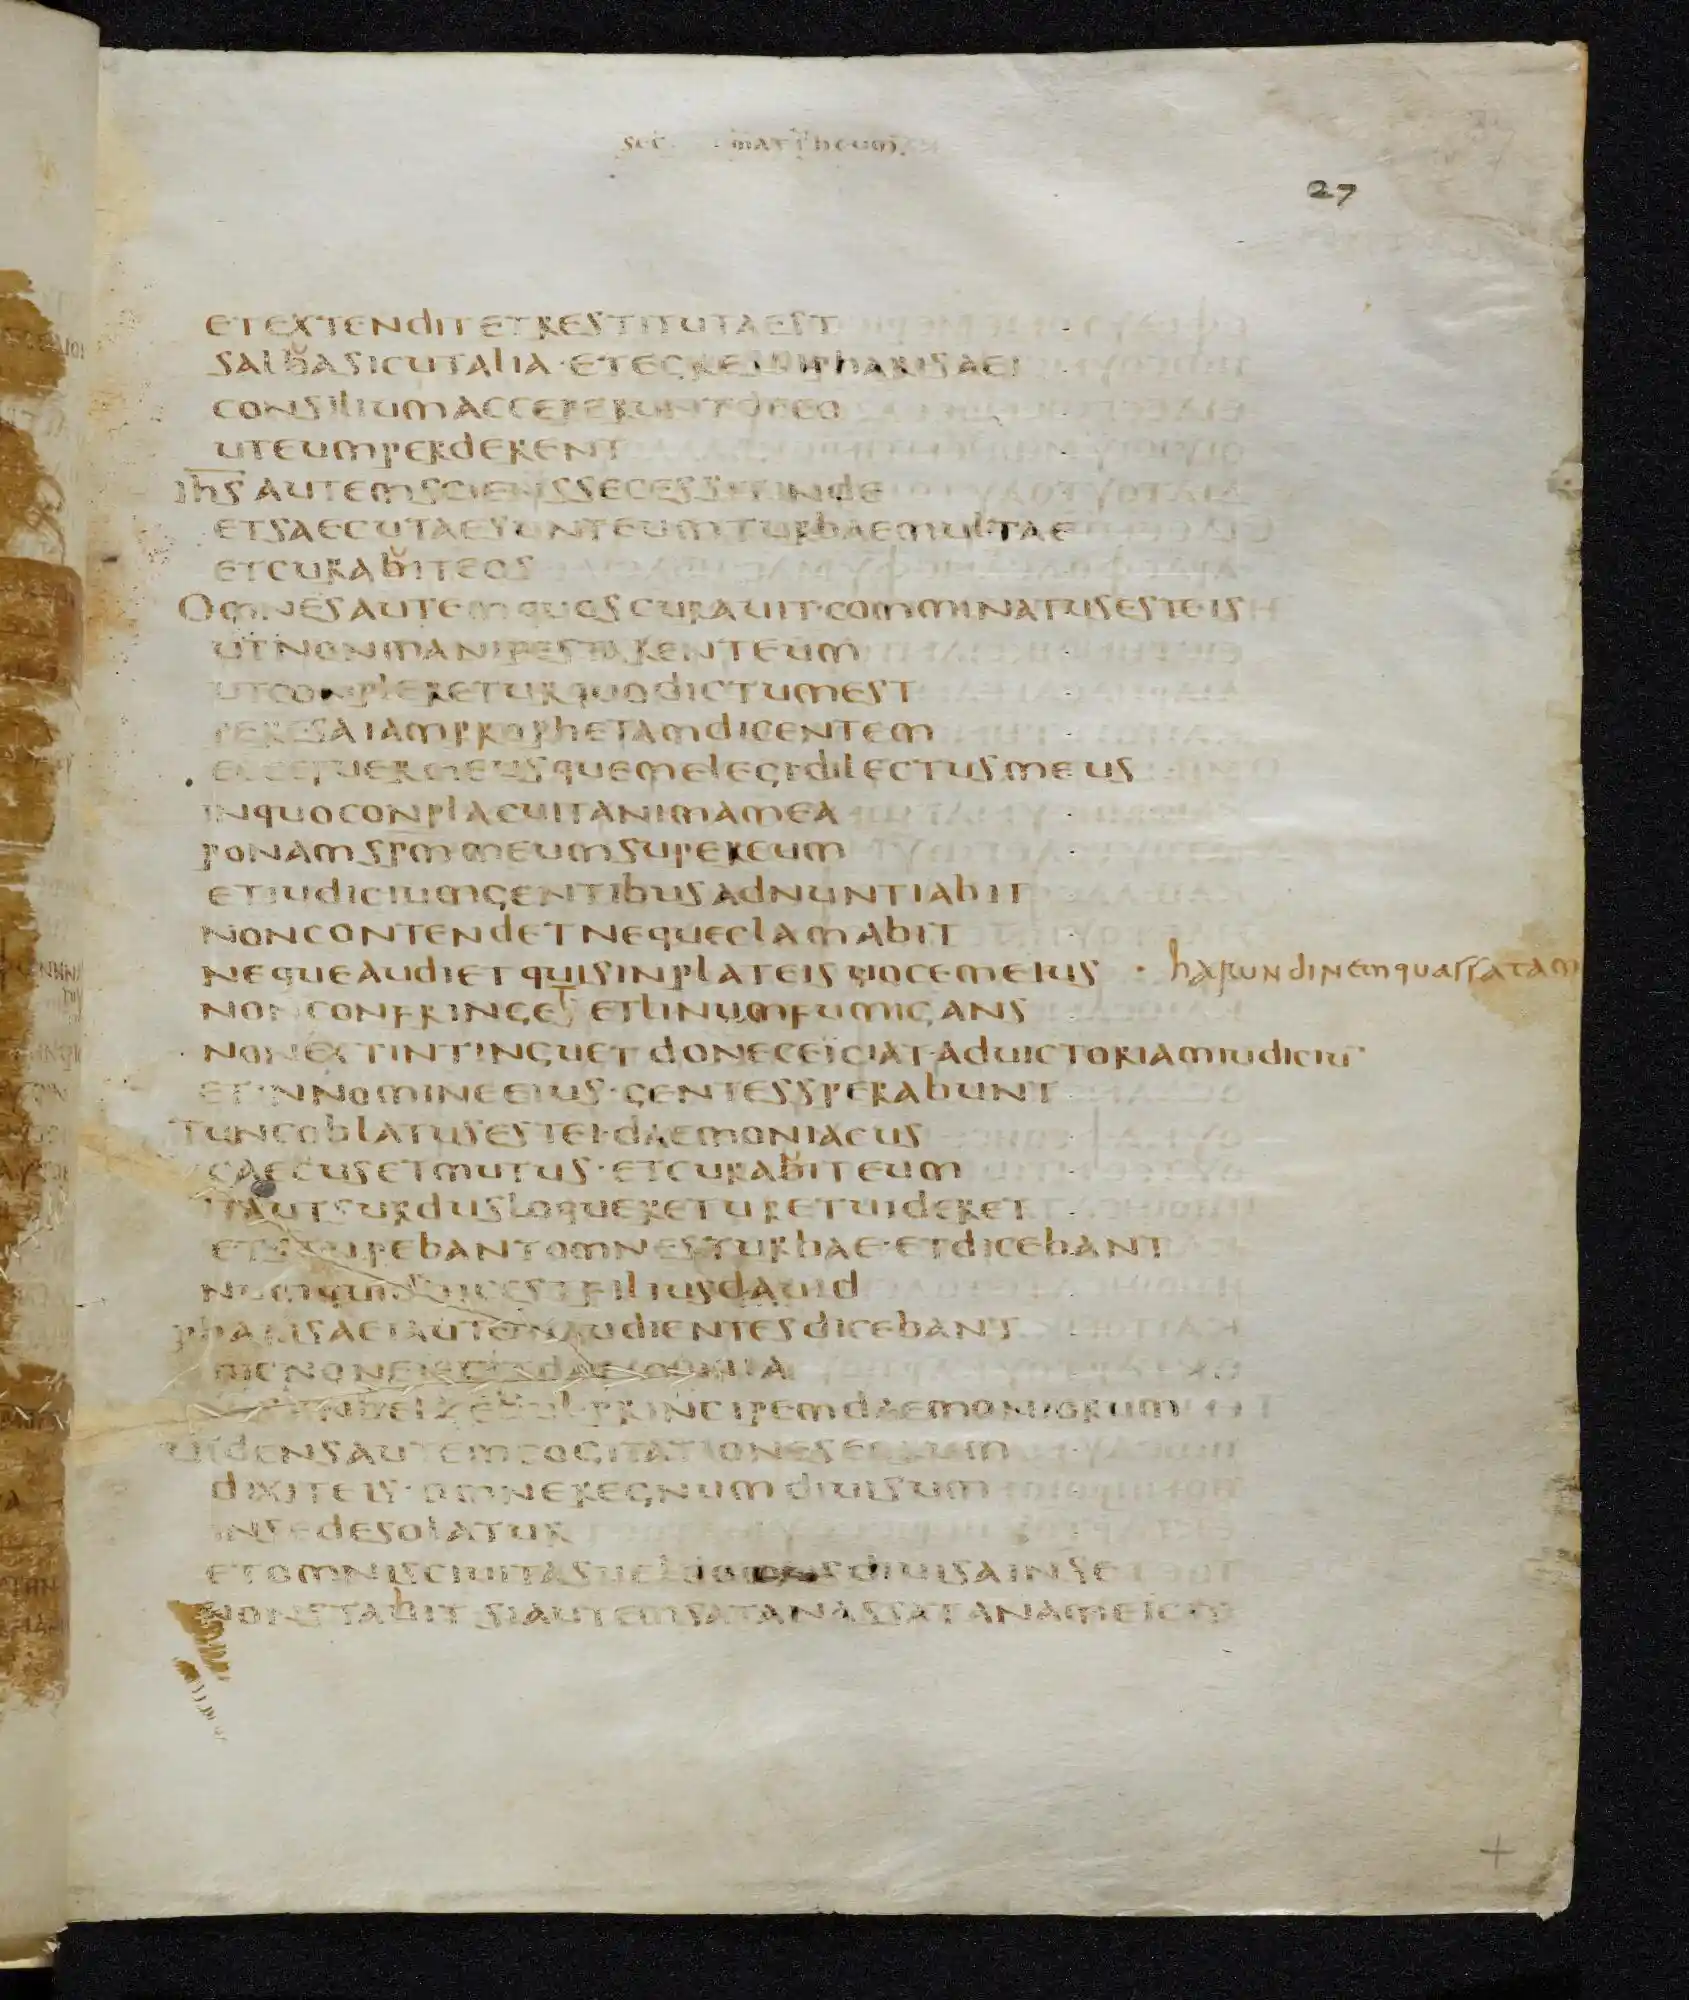 sec mattheum
27
et extendit et restituta est
salba sicut alia · et egressi pharisaei
consilium acceperunt de eo
ut eum perderent
ihs autem sciens secessit inde
et saecutae sunt eum turbae multae
et curabit eos
Omnes autem quos curauit · comminatus est eis
ut non manifestarent eum
ut conpleretur quo dictum est
per esaiam prophetam dicentem
ecce puer meus quem elegi dilectus meus
in quo conplacuit anima mea
ponam spm meum super eum
et iudicium gentibus adnuntiabit
non contendet neque clamabit
neque audiet quis in plateis uocem eius · harundinem quassatam
non confringet et linum fumigans
non extintinguet donec eiciat · ad uictoriam iudiciu
et in nomine eius · gentes sperabunt
Tunc oblatus est ei · daemoniacus
caecus et mutus · et curabit eum
ita ut surdus loqueretur et uideret
et stupebant omnes turbae · et dicebant
numquid hic est filius dauid
pharisaei autem audientes dicebant
hic non eiecit daemonia
belzebul principem daemoniorum
uidens autem cogitationes eorum
dixit eis · omne regnum diuisum
in se desolatur
et omnis ciuitas uel domus diuisa in se
non stabit si autem satanas satanam eicit